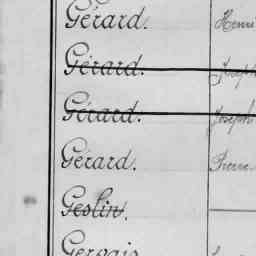 Gérard. Henri
Gérard. Joseph
Gérard. Joseph
Gérard. Pierre
Geslin.
Gervais